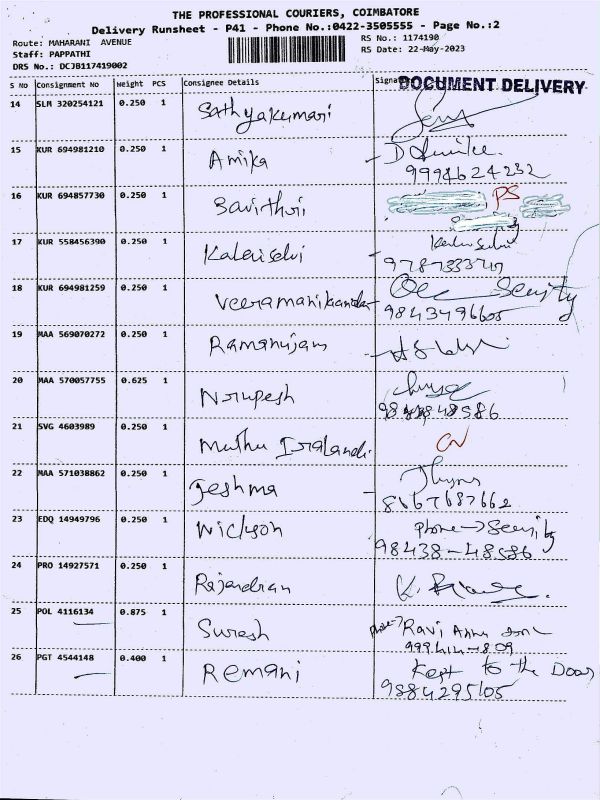 THE PROFESSIONAL COURIERS, COIMBATORE
Delivery Runsheet - P41 - Phone No.:0422-3505555 - Page No.:2
Route: MAHARANI AVENUE
RS No.: 1174190
Staff: PAPPATHI
RS Date: 22-May-2023
DRS No.: DCJB117419002
S No Consignment No Weight PCS Consignee Details Signa
DOCUMENT DELIVERY
14 SLM 320254121 0.250 1 Sathyakumari
15 KUR 694981210 0.250 1 Amika
16 KUR 694857730 0.250 1 Savithri PS
17 KUR 558456390 0.250 1 Kalaiselvi
18 KUR 694981259 0.250 1 Veeramanikandan Security
9843496605
19 MAA 569070272 0.250 1 Ramanujam
20 MAA 570057755 0.625 1 Nrupesh
21 SVG 4603989 0.250 1 Muthu CN
22 MAA 571038862 0.250 1 Jeshma
8667687662
23 EDQ 14949796 0.250 1 Wickson Phone → Security
98438-48586
24 PRO 14927571 0.250 1 Rajandran
25 POL 4116134 0.875 1 Suresh Ravi Anna
26 PGT 4544148 0.400 1 Remani Kept to the Door
9884295105